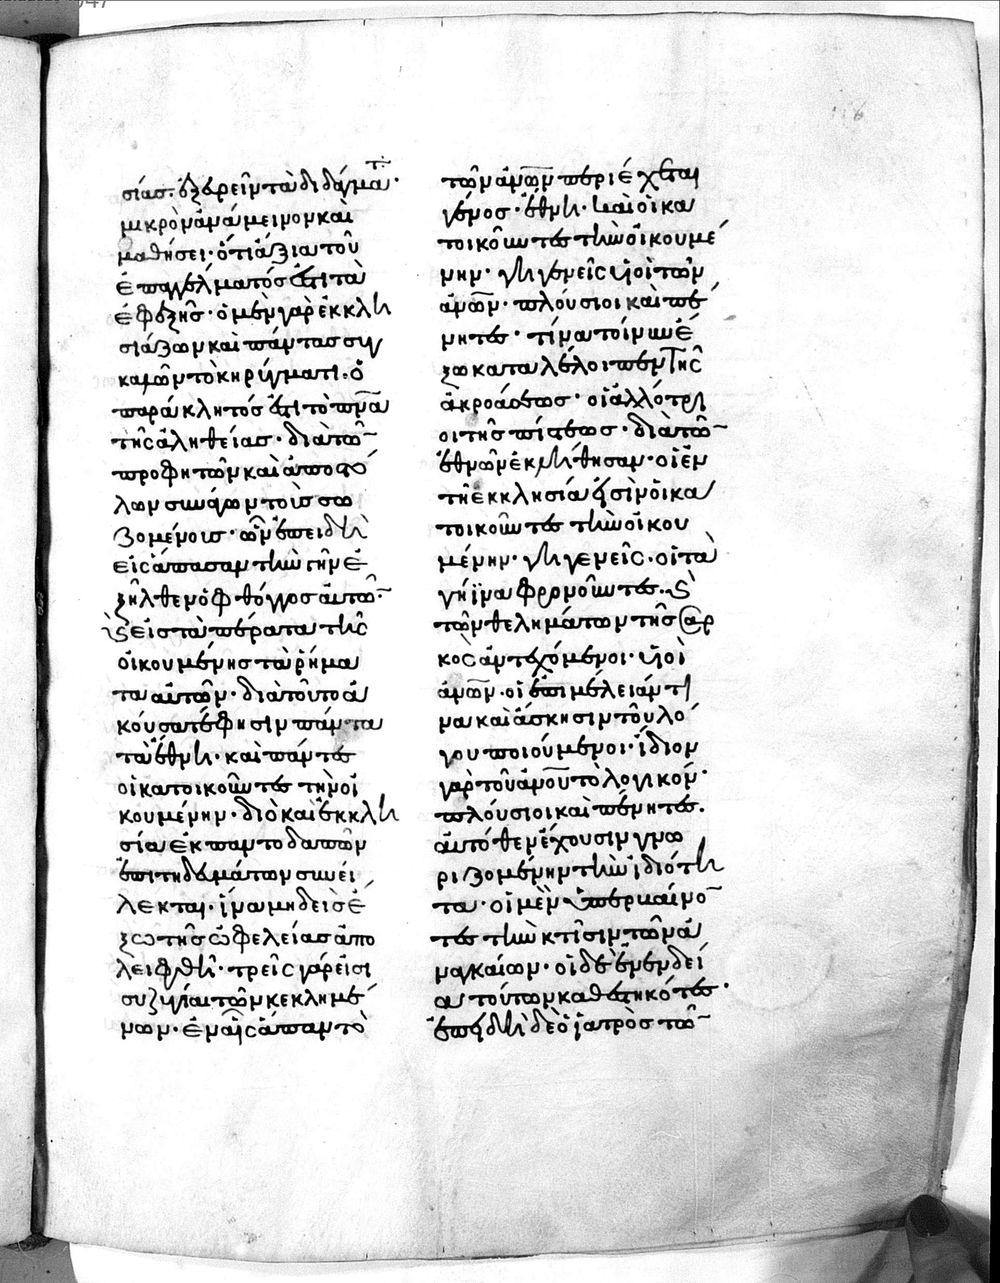 σίας· ἐξευρεῖν τὰ διδάγματα·
μικρὸν ἀνάμεινον καὶ
μαθήσει· ὅτι ἄξια τοῦ
ἐπαγγέλματός ἐστι τὰ
ἐφεξῆς· ὁ μὲν γὰρ ἐκκλη
σιάζων καὶ πάντας συγ
καλῶν τὸ κηρύγματι· ὁ
παράκλητός ἐστι τὸ πνᾶ
τῆς ἀληθείας· διὰ τῶν
προφητῶν καὶ ἀποστό
λων συνάγων τοὺς σω
ζομένους· ὧν ἐπειδὴ
εἰς ἅπασαν τὴν γῆν ἐ
ξῆλθεν ὁ φθόγγος αὐτῶν·
καὶ εἰς τὰ πέρατα τῆς
οἰκουμένης τὰ ῥήμα
τα αὐτῶν· διὰ τοῦτο ἀ
κούσατέ φησιν πάντα
τὰ ἔθνη· καὶ πάντες
οἱ κατοικοῦντες τὴν οἰ
κουμένην· διὸ καὶ ἐκκλη
σία ἐκ παντοδαπῶν
ἐπιτηδευμάτων συνεί
λεκται· ἵνα μηδεὶς ἔ
ξω τῆς ὠφελείας ἀπο
λειφθῆ· τρεῖς γάρ εἰσι
συζυγίαι τῶν κεκλημέ
νων· ἐν αἷς ἅπαν τὸ
τῶν ἀνῶν περιέχεται
γένος· ἔθνη· καὶ οἱ κα
τοικοῦντες τὴν οἰκουμέ
νην· γηγενεῖς υἱοὶ τῶν
ἀνῶν· πλούσιοι καὶ πέ
νητες· τίνα τοίνυν ἔ
ξω καταλέλοιπεν τῆς
ἀκροάσεως· οἱ ἀλλότρι
οι τῆς πίστεως· διὰ τῶν
ἐθνῶν ἐκλήθησαν· οἱ ἐν
τῆ ἐκκλησία εἰσὶν οἱ κα
τοικοῦντες τὴν οἰκου
μένην· γηγενεῖς· οἱ τὰ
γήϊνα φρονοῦντες· καὶ
τῶν θελημάτων τῆς σαρ
κὸς ἀντεχόμενοι· υἱοὶ
ἀνῶν· οἱ ἐπιμέλειάν τι
να καὶ ἄσκησιν τοῦ λό
γου ποιούμενοι· ἴδιον
γὰρ τοῦ ἀνου τὸ λογικόν·
πλούσιοι καὶ πένητες·
αὐτόθεν ἔχουσιν γνω
ριζομένην τὴν ἰδιότη
τα· οἱ μὲν ὑπερβαίνον
τες τὴν κτῆσιν τῶν ἀ
ναγκαίων· οἱ δὲ ἐν ἐνδεί
α τούτων καθεστηκότες·
ἐπειδὴ δὲ ὁ ἰατρὸς τῶν